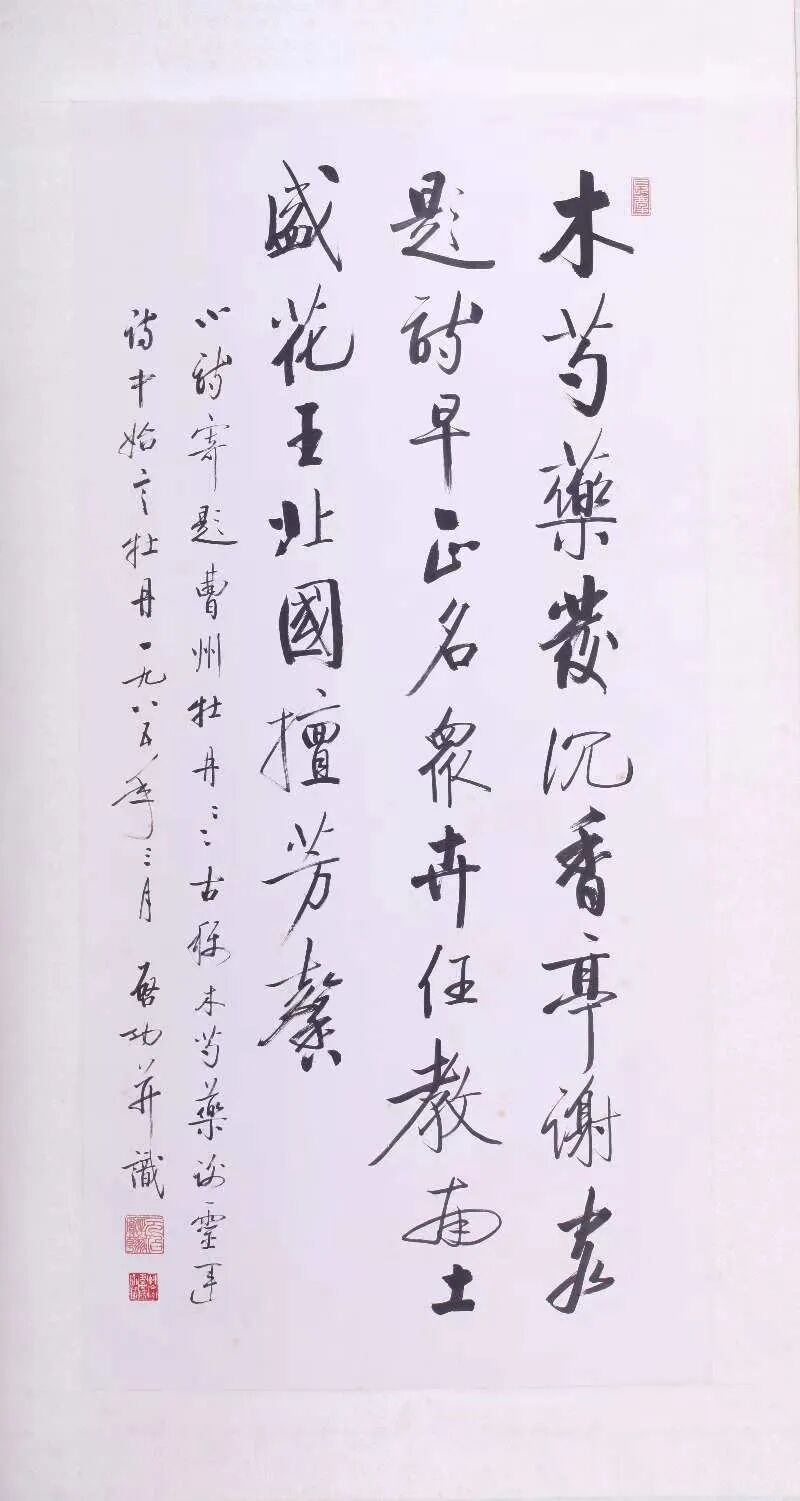 木芍藥發沉香亭謝客
題詩早正名眾卉任教南土
盛花王北國擅芳馨
小詩寄題曹州牡丹〻〻古稱木芍藥謝靈運
詩中始言牡丹一九八五年三月 啓功并識